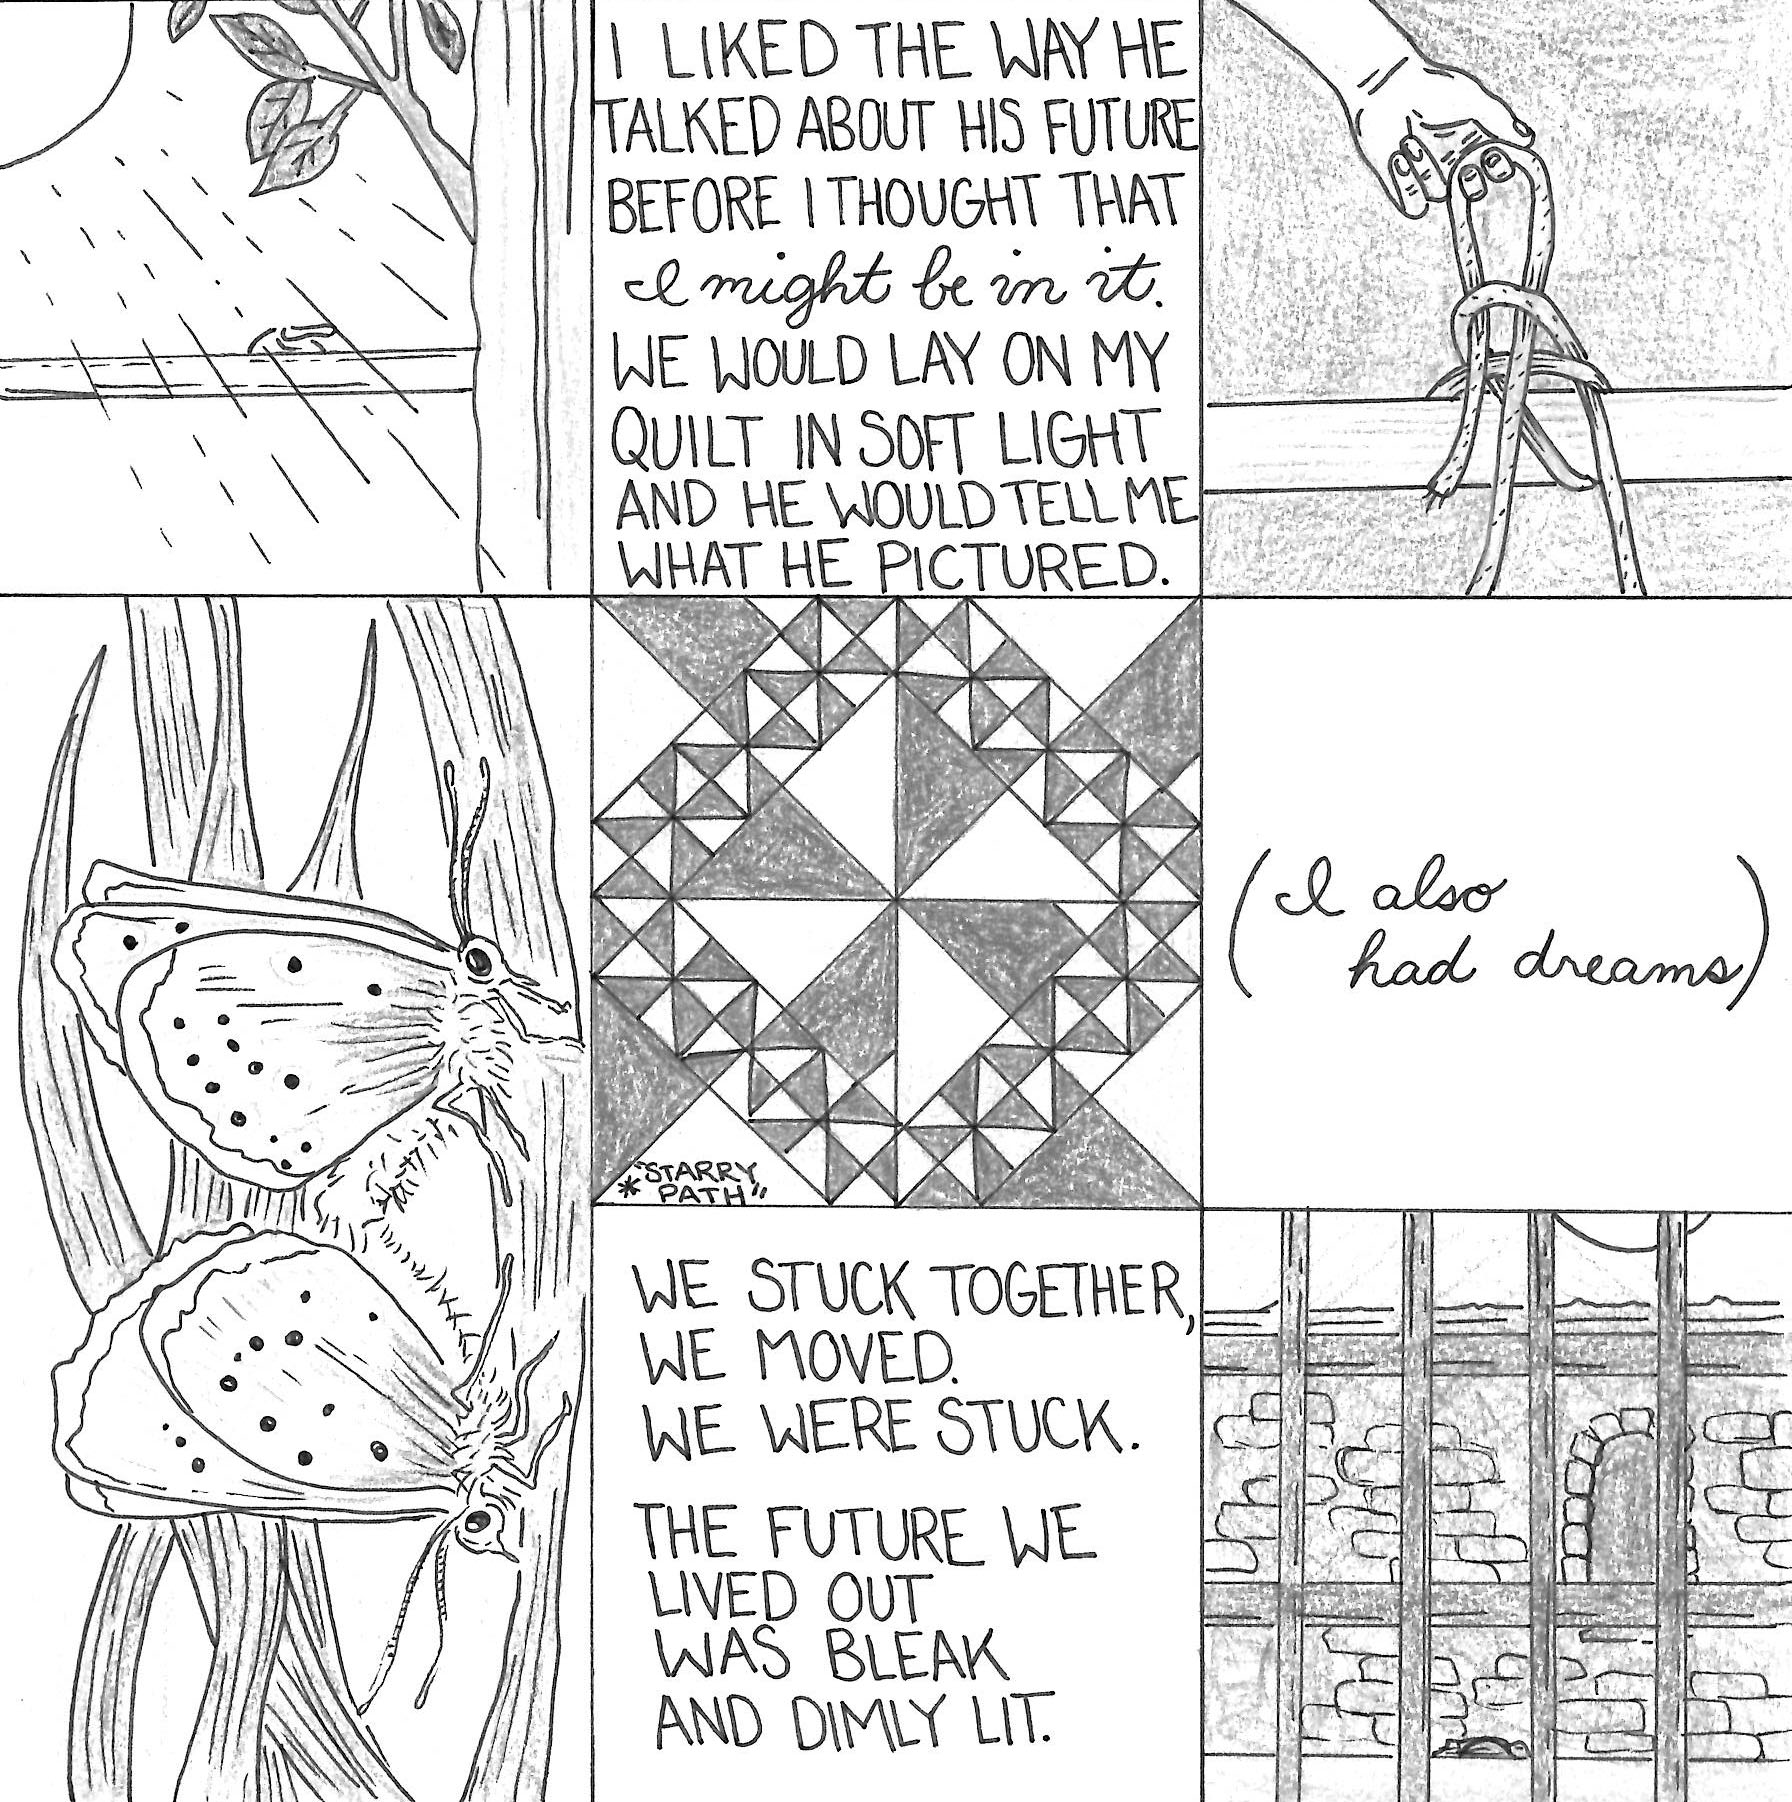 I LIKED THE WAY HE
TALKED ABOUT HIS FUTURE
BEFORE I THOUGHT THAT
I might be in it.
WE WOULD LAY ON MY
QUILT IN SOFT LIGHT
AND HE WOULD TELL ME
WHAT HE PICTURED.
* "STARRY
PATH"
(I also
had dreams)
WE STUCK TOGETHER,
WE MOVED.
WE WERE STUCK.
THE FUTURE WE
LIVED OUT
WAS BLEAK
AND DIMLY LIT.